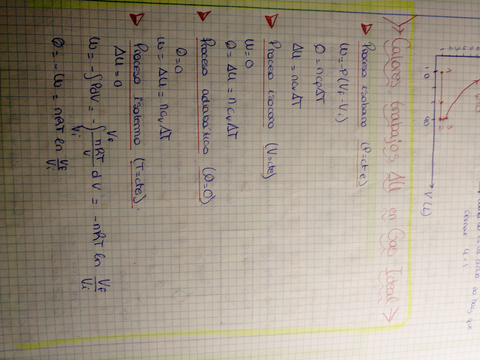 Calores, trabajos ΔU en Gas Ideal
Proceso isobaro (P=cte)
W=-P(Vf-Vi)
Q=ncpΔT
ΔU=ncvΔT
Proceso isocoro (V=cte)
W=0
Q=ΔU=ncvΔT
Proceso adiabático (Q=0)
Q=0
W=ΔU=ncvΔT
Proceso isotermo (T=cte)
ΔU=0
W=-∫PdV=-∫Vi Vf nRT/V dV=-nRT ln Vf/Vi
Q=-W=nRT ln Vf/Vi
V(L)